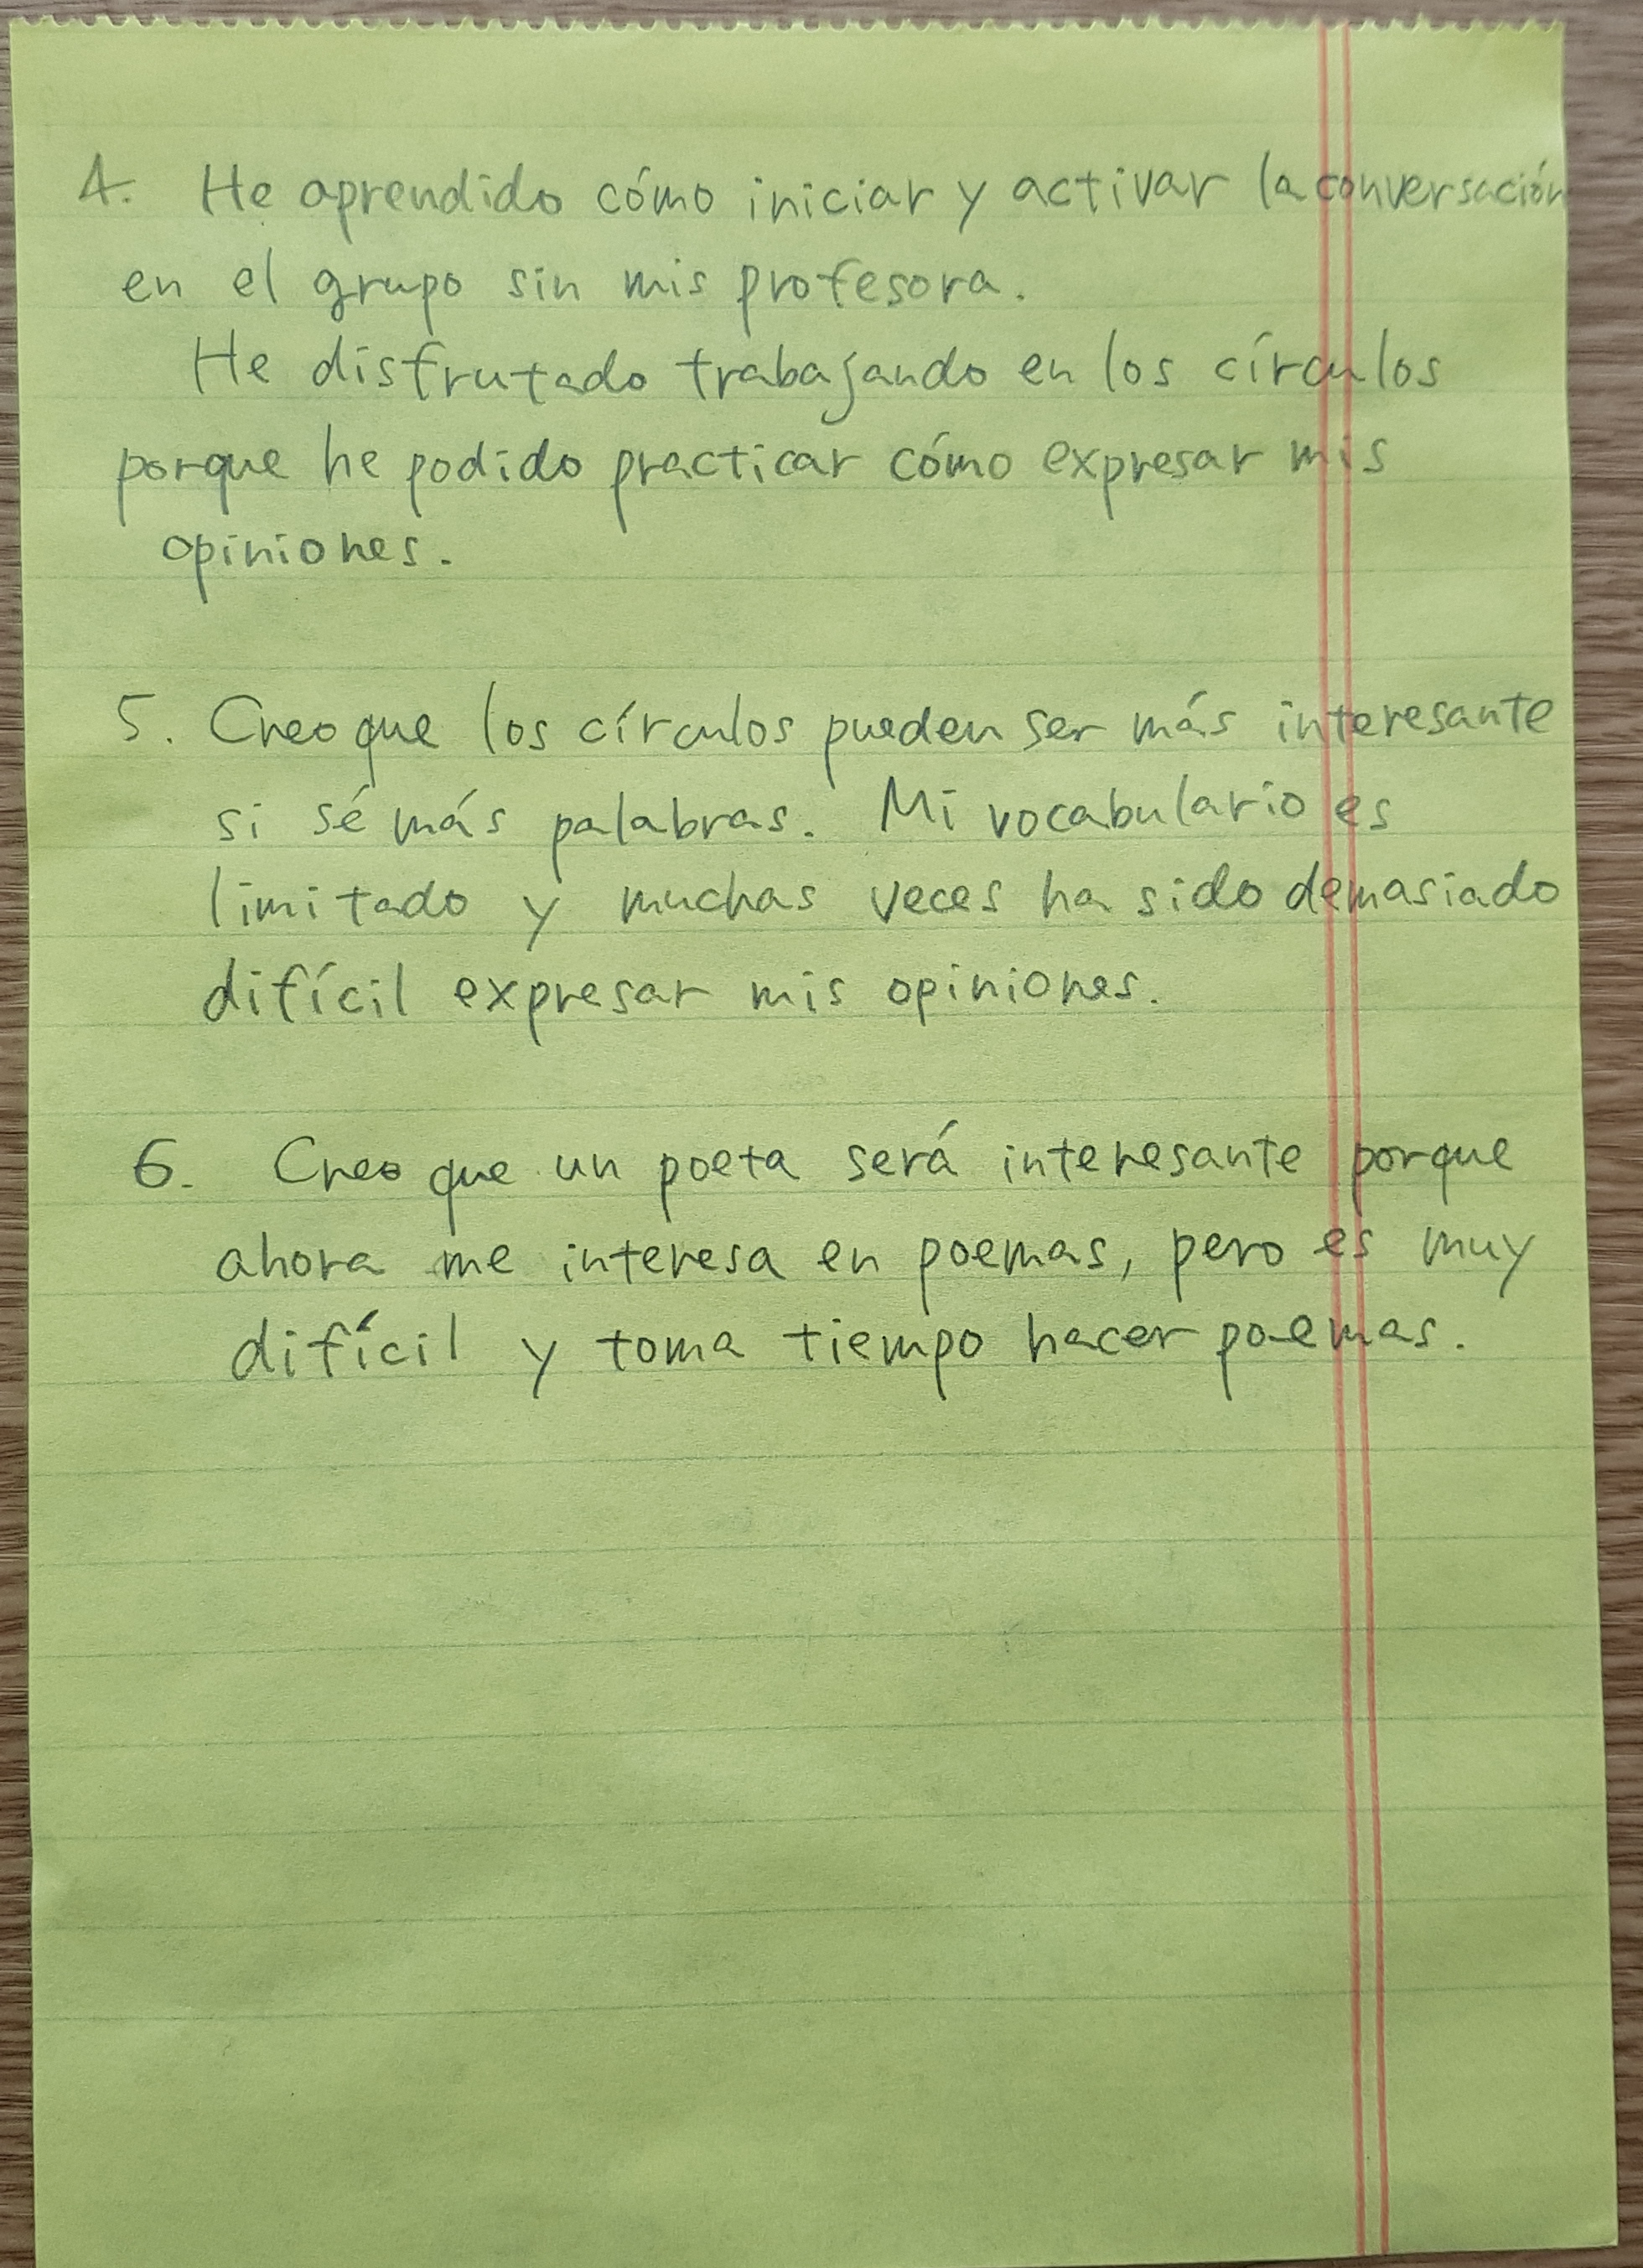 4. He aprendido cómo iniciar y activar la conversación
en el grupo sin mis profesora.
He disfrutado trabajando en los círculos
porque he podido practicar cómo expresar mis
opiniones.
5. Creo que los círculos pueden ser más interesante
si sé más palabras. Mi vocabulario es
limitado y muchas veces ha sido demasiado
difícil expresar mis opiniones.
6. Creo que un poeta será interesante porque
ahora me interesa en poemas, pero es muy
difícil y toma tiempo hacer poemas.